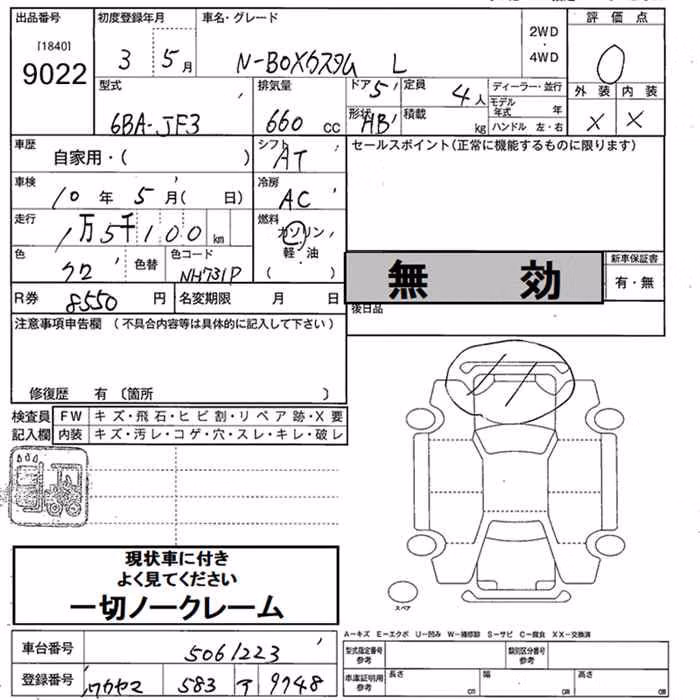 出品番号 初度登録年月 車名・グレード 2WD・4WD 評価点
[1840]
9022
3 5月 N-BOXカスタム L 0
型式 排気量 ドア 5 定員 4人 ディーラー・並行 外装 内装
6BA-JF3 660 cc 形状 HB 積載 kg モデル年式 年 ハンドル 左・右 X X
車歴 自家用・( ) シフト AT セールスポイント(正常に機能するものに限ります)
車検 10年 5月( 日) 冷房 AC
走行 1万5千100 km 燃料 ガソリン・軽・油 ( ・ )
色 クロ 色替 色コード NH731P
無 効 新車保証書 有・無
R券 8550円 名変期限 月 日 後日品
注意事項申告欄 (不具合内容等は具体的に記入して下さい)
修復歴 有 〔箇所 〕
検査員 FW キズ・飛石・ヒビ割・リペア跡・X要
記入欄 内装 キズ・汚レ・コゲ・穴・スレ・キレ・破レ
現状車に付き
よく見てください
一切ノークレーム
スペア
A-キズ E-エクボ U-凹み W-補修跡 S-サビ C-腐食 XX-交換済
車台番号 5061223 型式指定番号 参考 類別区分番号 参考
登録番号 ワカヤマ 583 9748 車庫証明用 参考 長さ cm 幅 cm 高さ cm